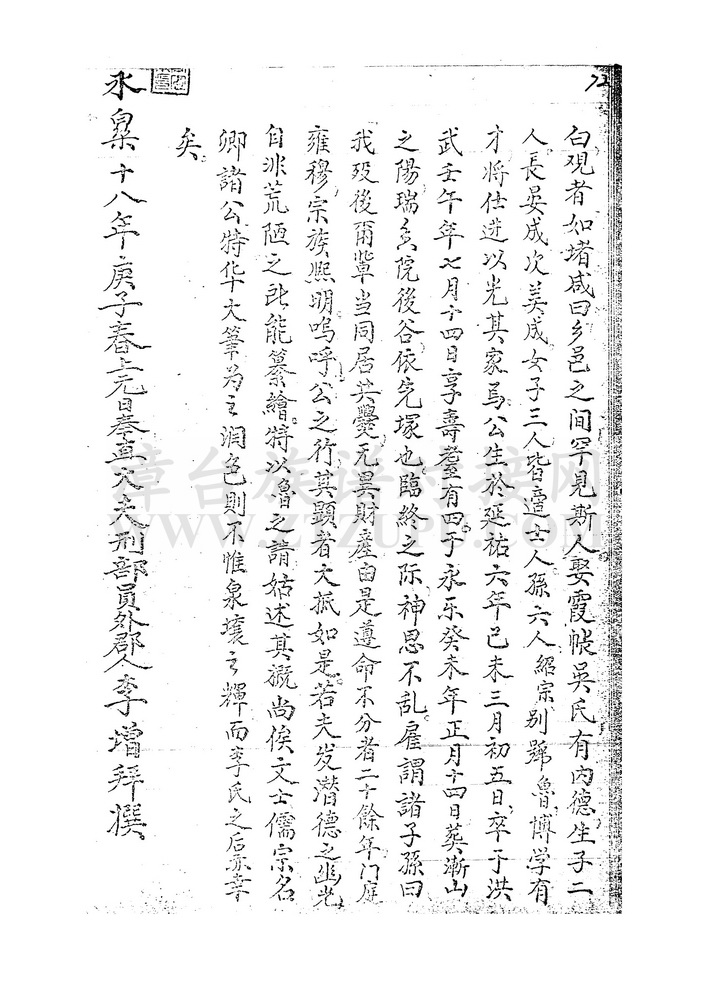 72
白观者如堵咸曰乡邑之间罕見斯人娶霞帐吳氏有内德生子二
人長晏成次美成女子三人皆適士人孫六人紹宗别號魯博学有
才將仕進以光其家焉公生於延祐六年已未三月初五日卒于洪
武壬午年七月十四日享壽耋有四于永乐癸未年正月十四日葬漸山
之陽瑞氣院後谷依先塚也臨終之际神思不乱雇謂諸子孫曰
我殁後爾輩当同居共爨无異財產由是遵命不分者二十餘年门庭
雍穆宗族熙明嗚呼公之行其顕者大抵如是若夫发潛德之幽光
自非荒陋之所能纂繪特以魯之請姑述其概尚俟文士儒宗名
卿諸公特华大筆为之润色則不惟泉壤之輝而李氏之后亦幸
矣
永樂十八年庚子春上元日奉直大夫刑部員外郡人李增拜撰
章台族谱对接网
WWW.ZTZUPU.COM